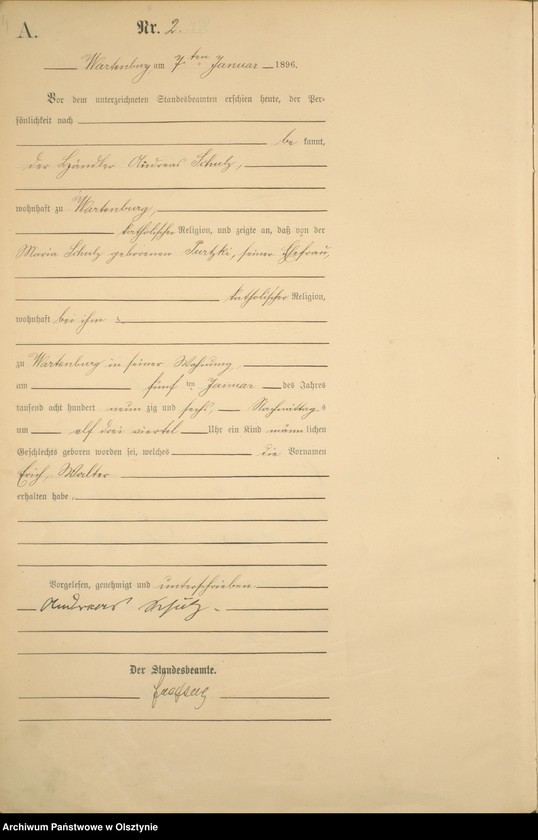 A.
Nr. 2.
Wartenburg am 7ten Januar 1896.
Vor dem unterzeichneten Standesbeamten erschien heute, der Per-
sönlichkeit nach
be kannt,
der Händler Andreas Schulz,
wohnhaft zu Wartenburg,
katholischer Religion, und zeigte an, daß von der
Maria Schulz geborenen Purtzki, seiner Ehefrau,
katholischer Religion,
wohnhaft bei ihm
zu Wartenburg in seiner Wohnung,
am fünf ten Januar des Jahres
tausend acht hundert neun zig und sechs, Nachmittag s
um elf drei viertel Uhr ein Kind männ lichen
Geschlechts geboren worden sei, welches die Vornamen
Erich, Walter
erhalten habe.
Vorgelesen, genehmigt und unterschrieben
Andreas Schulz
Der Standesbeamte.
Archiwum Państwowe w Olsztynie